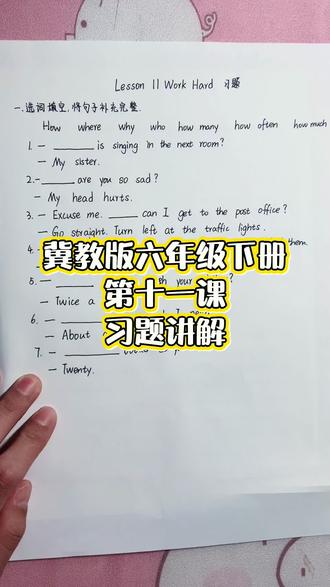 Lesson 11 Work Hard 习题
一.选词填空,将句子补充完整.
How where why who how many how often how much
1. — ______ is singing in the next room?
— My sister.
2. - ______ are you so sad?
— My head hurts.
3. — Excuse me. ______ can I get to the post office?
— Go straight. Turn left at the traffic lights.
4. them.
冀教版六年级下册
5. — your
第十一课
— Twice a
6. —
习题讲解
— About
7. — ______
— Twenty.